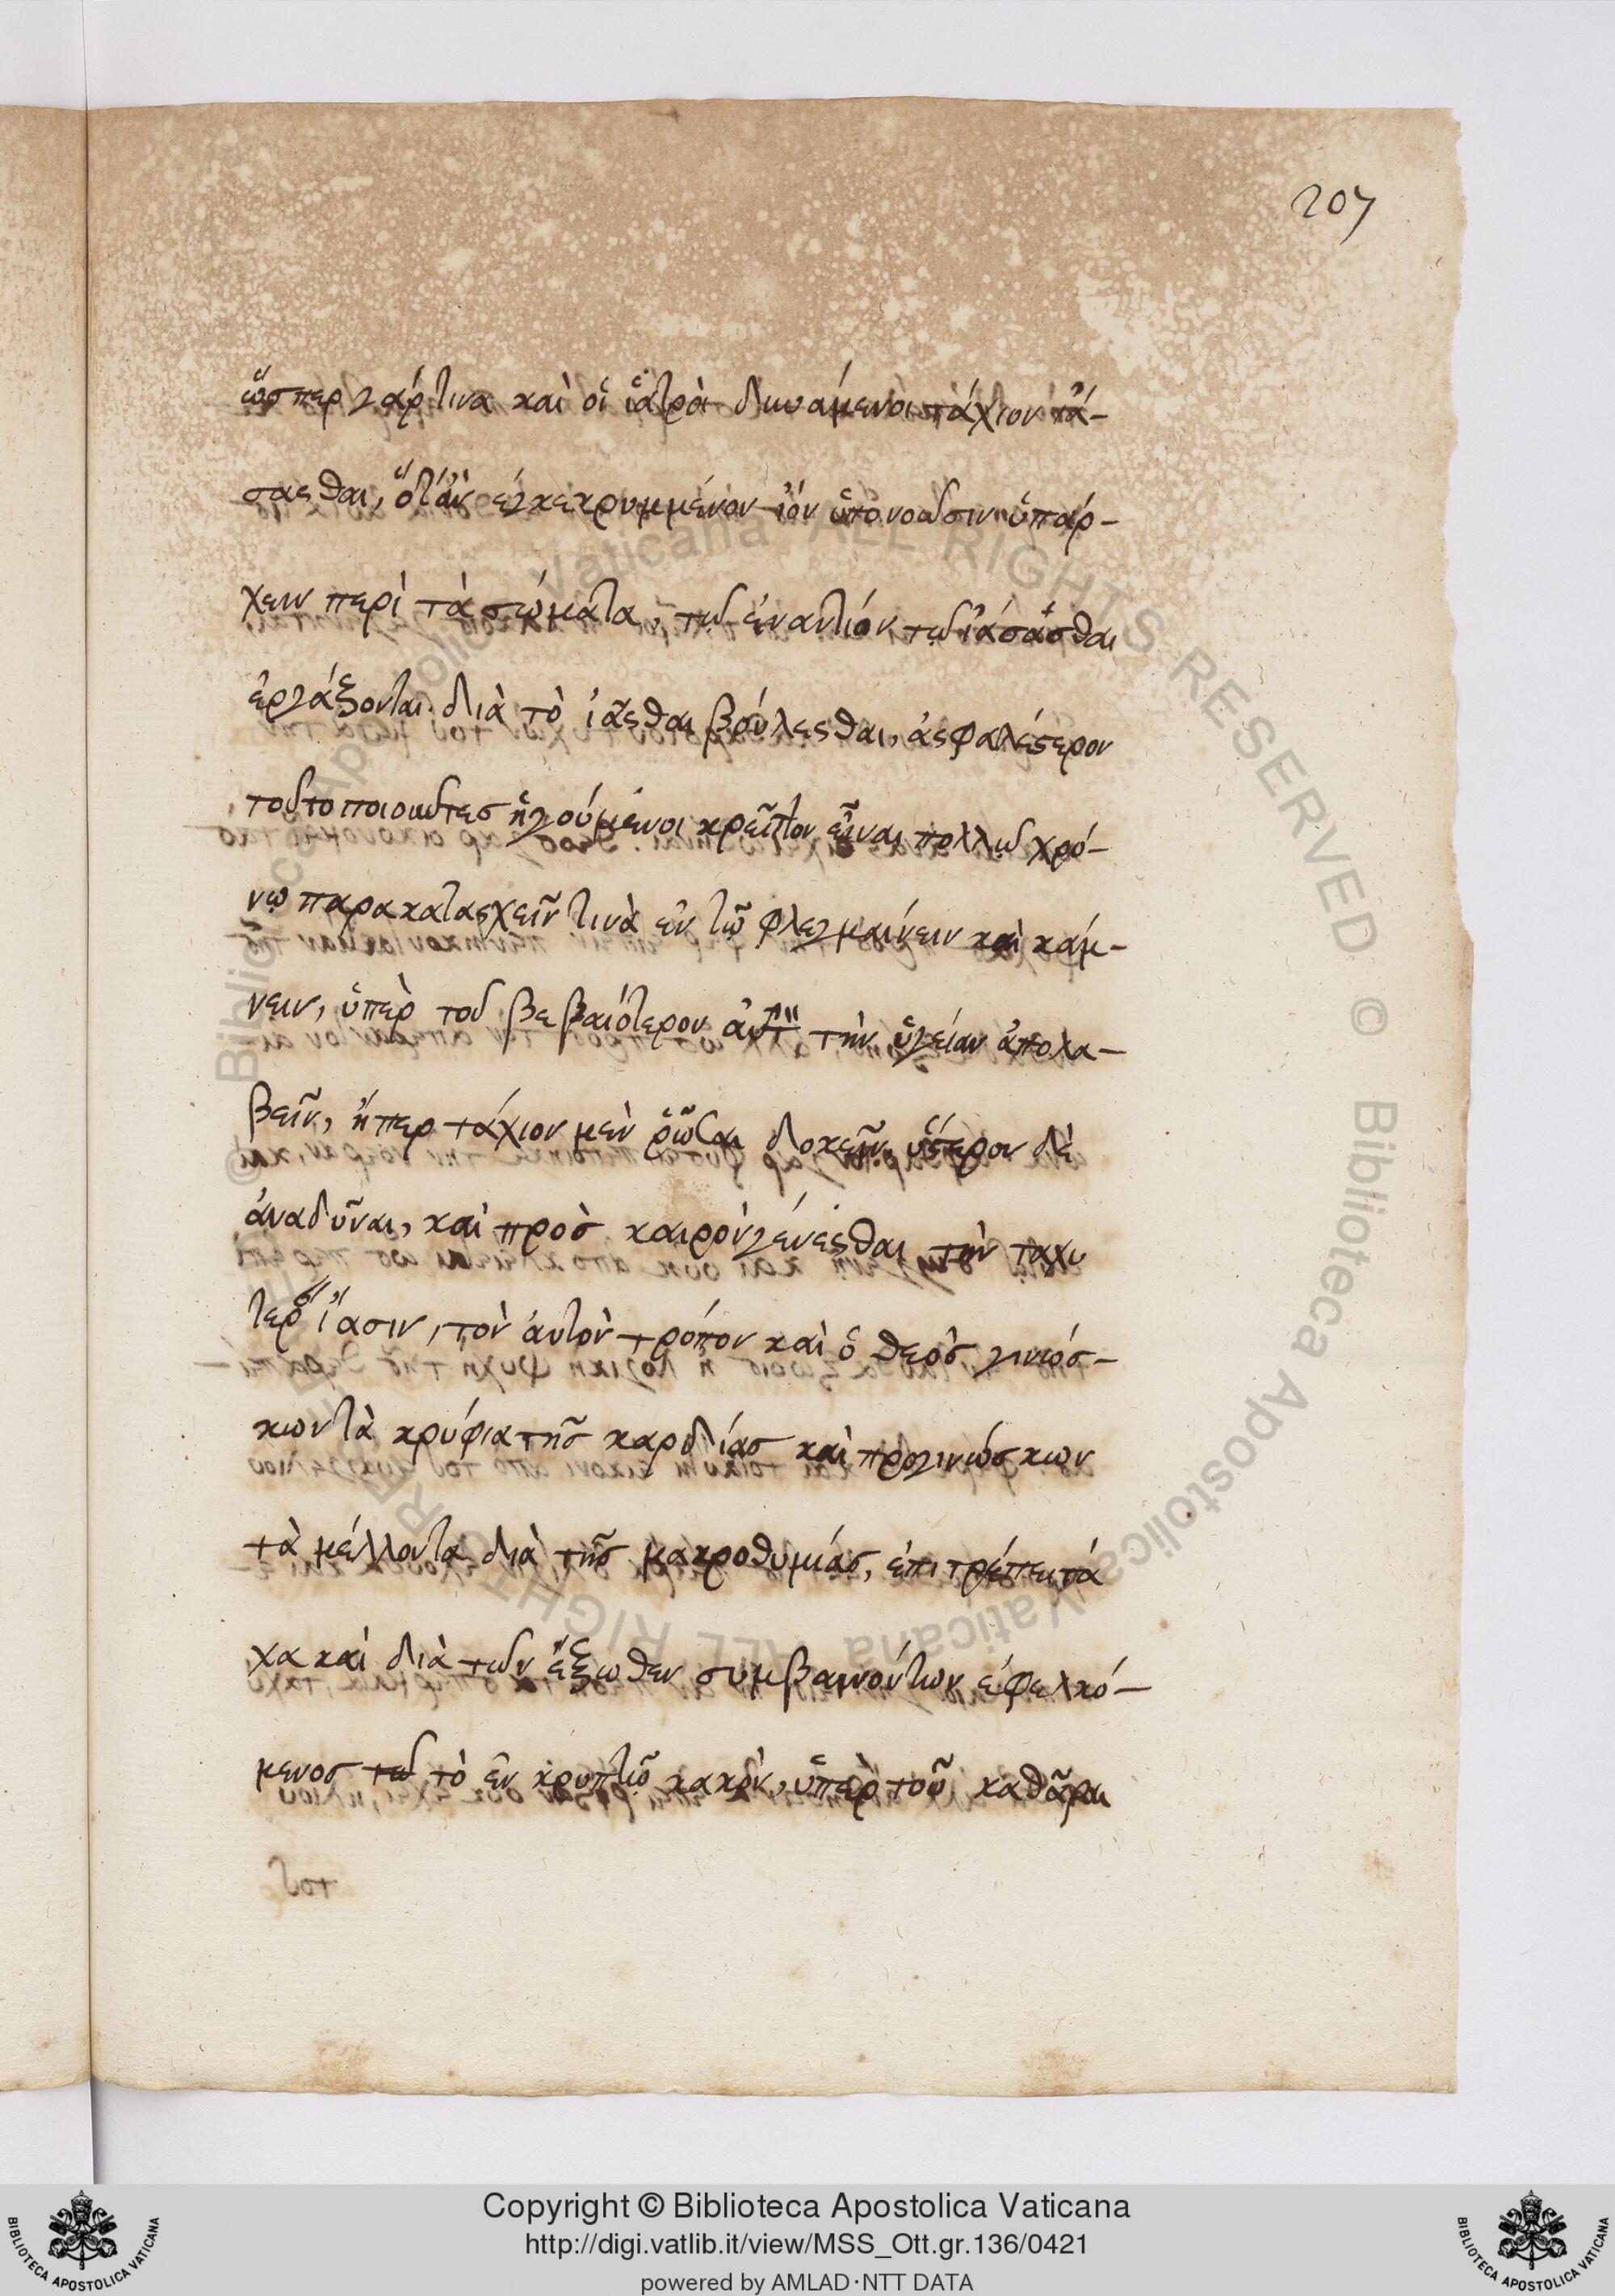 207
ὥσπερ γάρ τινα καὶ οἱ ἰατροὶ δυνάμενοι τάχιον ἰά-
σασθαι, ὅταν ἐγκεκρυμμένον ἰὸν ὑπονοῶσιν ὑπάρ-
χειν περὶ τὰ σώματα, τῶ ἐναντίον τῶ ἰάσασθαι
ἐργάζονται διὰ τὸ ἰᾶσθαι βούλεσθαι, ἀσφαλέστερον
τοῦτο ποιοῦντες ἡγούμενοι κρεῖττον εἶναι πολλῶ χρό-
νω παρακατασχεῖν τινὰ ἐν τῶ φλεγμαίνειν καὶ κάμ-
νειν, ὑπὲρ τοῦ βεβαιότερον τὴν ὑγείαν ἀπολα-
βεῖν, ἤπερ τάχιον μὲν ῥῶσαι δοκεῖν, ὕστερον δὲ
ἀναδῦναι, καὶ πρὸς καιρὸν γένεσθαι τὴν ταχυ
τέραν ἴασιν, τὸν αὐτὸν τρόπον καὶ ὁ θεὸς γινώσ-
κων τὰ κρύφια τῆς καρδίας καὶ προγινώσκων
τὰ μέλλοντα διὰ τῆς μακροθυμίας, ἐπιτρέπει τά
χα καὶ διὰ τῶν ἔξωθεν συμβαινόντων ἐφελκό-
μενος τὸ ἐν κρυπτῶ κακὸν, ὑπὲρ τοῦ καθᾶραι
© Biblioteca Apostolica Vaticana ALL RIGHTS RESERVED © Biblioteca Apostolica Vaticana ALL RIGHTS RESERVED
Copyright © Biblioteca Apostolica Vaticana
http://digi.vatlib.it/view/MSS_Ott.gr.136/0421
powered by AMLAD·NTT DATA
BIBLIOTECA APOSTOLICA VATICANA
BIBLIOTECA APOSTOLICA VATICANA